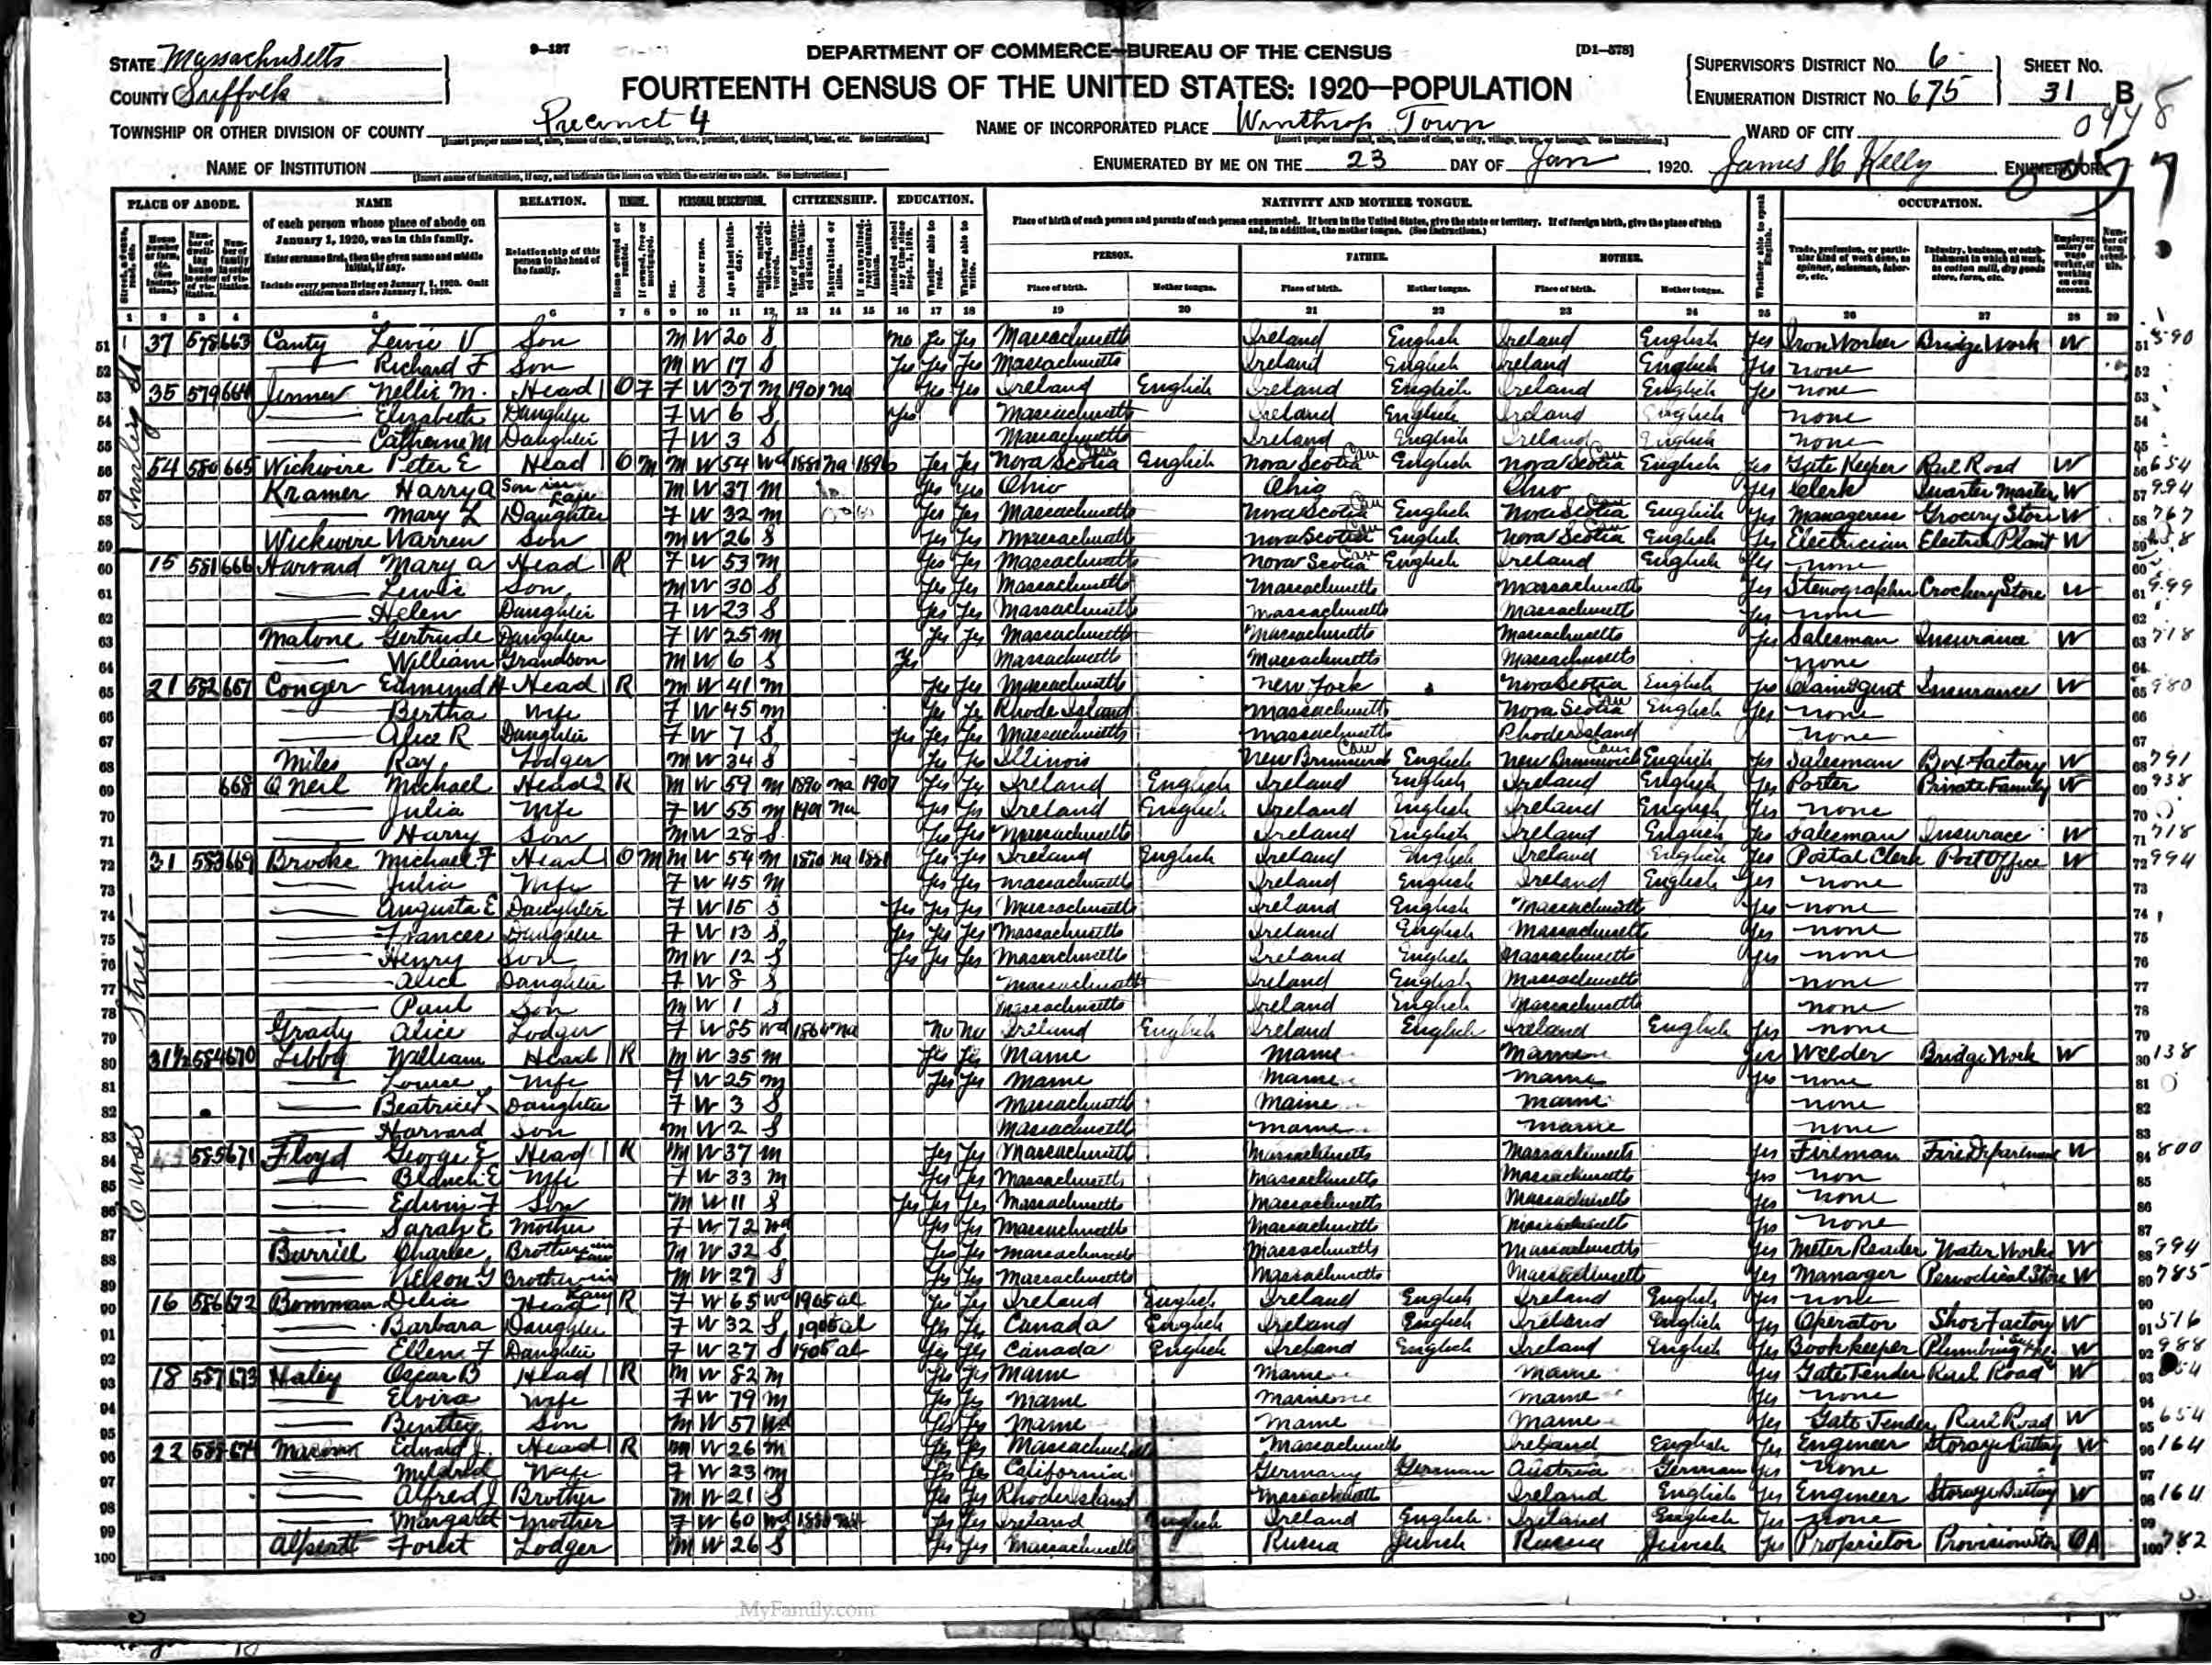 9—137
DEPARTMENT OF COMMERCE—BUREAU OF THE CENSUS
[D1—578]
STATE Massachusetts
COUNTY Suffolk
FOURTEENTH CENSUS OF THE UNITED STATES: 1920—POPULATION
SUPERVISOR'S DISTRICT No. 6
ENUMERATION DISTRICT No. 675
SHEET No.
31 B
TOWNSHIP OR OTHER DIVISION OF COUNTY Precinct 4
NAME OF INCORPORATED PLACE Winthrop Town
WARD OF CITY
NAME OF INSTITUTION
ENUMERATED BY ME ON THE 23 DAY OF Jan, 1920. James H Kelly ENUMERATOR
PLACE OF ABODE. NAME RELATION. TENURE. PERSONAL DESCRIPTION. CITIZENSHIP. EDUCATION. NATIVITY AND MOTHER TONGUE. OCCUPATION.
of each person whose place of abode on January 1, 1920, was in this family.
Enter surname first, then the given name and middle initial, if any.
Include every person living on January 1, 1920. Omit children born since January 1, 1920.
Relationship of this person to the head of the family.
Place of birth of each person and parents of each person enumerated. If born in the United States, give the state or territory. If of foreign birth, give the place of birth and, in addition, the mother tongue. (See Instructions.)
PERSON. FATHER. MOTHER.
Place of birth. Mother tongue. Place of birth. Mother tongue. Place of birth. Mother tongue.
1 2 3 4 5 6 7 8 9 10 11 12 13 14 15 16 17 18 19 20 21 22 23 24 25 26 27 28 29
Shirley St
51 37 578 663 Canty Lewie V Son M W 20 S No Yes Yes Massachusetts Ireland English Ireland English Yes Iron Worker Bridge Work W 51
52 Richard F Son M W 17 S Yes Yes Yes Massachusetts Ireland English Ireland English Yes none 52
53 35 579 664 Jenner Nellie M. Head 1 O F F W 37 M 1901 Na Yes Yes Ireland English Ireland English Ireland English Yes none 53
54 Elizabeth Daughter F W 6 S Yes Massachusetts Ireland English Ireland English none 54
55 Catherine M Daughter F W 3 S Massachusetts Ireland English Ireland English none 55
56 54 580 665 Wickwire Peter E Head 1 O M M W 54 Wd 1881 Na 1896 Yes Yes Nova Scotia Can English Nova Scotia Can English Nova Scotia Can English Yes Gate Keeper Rail Road W 56 654
57 Kramer Harry A Son in Law M W 37 M Yes Yes Ohio Ohio Ohio Yes Clerk Quarter Master W 57 994
58 Mary L Daughter F W 32 M Yes Yes Massachusetts Nova Scotia Can English Nova Scotia Can English Yes Manageress Grocery Store W 58 767
59 Wickwire Warren Son M W 26 S Yes Yes Massachusetts Nova Scotia English Nova Scotia Can English Yes Electrician Electric Plant W 59
60 15 581 666 Harvard Mary A Head 1 R F W 53 M Yes Yes Massachusetts Nova Scotia Can English Ireland English Yes none 60
61 Lewis Son M W 30 S Yes Yes Massachusetts Massachusetts Massachusetts Yes Stenographer Crockery Store W 61 999
62 Helen Daughter F W 23 S Yes Yes Massachusetts Massachusetts Massachusetts Yes none 62
63 Malone Gertrude Daughter F W 25 M Yes Yes Massachusetts Massachusetts Massachusetts Yes Salesman Insurance W 63 718
64 William Grandson M W 6 S Yes Massachusetts Massachusetts Massachusetts none 64
65 21 582 667 Conger Edmund H Head 1 R M W 41 M Yes Yes Massachusetts New York Nova Scotia English Yes Claim Agent Insurance W 65 980
66 Bertha Wife F W 45 M Yes Yes Rhode Island Massachusetts Nova Scotia Can English Yes none 66
67 Alice R Daughter F W 7 S Yes Yes Yes Massachusetts Massachusetts Rhode Island none 67
68 Miles Ray Lodger M W 34 S Yes Yes Illinois New Brunswick Can English New Brunswick Can English Yes Salesman Box Factory W 68 791
69 668 O'Neil Michael Head 2 R M W 59 M 1890 Na 1907 Yes Yes Ireland English Ireland English Ireland English Yes Porter Private Family W 69 938
70 Julia Wife F W 55 M 1901 Na Yes Yes Ireland English Ireland English Ireland English Yes none 70
71 Harry Son M W 28 S Yes Yes Massachusetts Ireland English Ireland English Yes Salesman Insurace W 71 718
Cross Street
72 31 583 669 Brooke Michael F Head 1 O M M W 54 M 1870 Na 1881 Yes Yes Ireland English Ireland English Ireland English Yes Postal Clerk Post Office W 72 994
73 Julia Wife F W 45 M Yes Yes Massachusetts Ireland English Ireland English Yes none 73
74 Augusta E Daughter F W 15 S Yes Yes Yes Massachusetts Ireland English Massachusetts Yes none 74
75 Frances Daughter F W 13 S Yes Yes Yes Massachusetts Ireland English Massachusetts Yes none 75
76 Henry Son M W 12 S Yes Yes Yes Massachusetts Ireland English Massachusetts Yes none 76
77 Alice Daughter F W 8 S Massachusetts Ireland English Massachusetts none 77
78 Paul Son M W 1 S Massachusetts Ireland English Massachusetts none 78
79 Grady Alice Lodger F W 85 Wd 1864 Na No No Ireland English Ireland English Ireland English Yes none 79
80 31½ 584 670 Libby William Head 1 R M W 35 M Yes Yes Maine Maine Maine Yes Welder Bridge Work W 80 138
81 Louise Wife F W 25 M Yes Yes Maine Maine Maine Yes none 81
82 Beatrice L Daughter F W 3 S Massachusetts Maine Maine none 82
83 Harvard Son M W 2 S Massachusetts Maine Maine none 83
84 585 671 Floyd George E Head 1 R M W 37 M Yes Yes Massachusetts Massachusetts Massachusetts Yes Fireman Fire Department W 84 800
85 Blanch E Wife F W 33 M Yes Yes Massachusetts Massachusetts Massachusetts Yes non 85
86 Edwin F Son M W 11 S Yes Yes Yes Massachusetts Massachusetts Massachusetts Yes none 86
87 Sarah E Mother F W 72 Wd Yes Yes Massachusetts Massachusetts Massachusetts Yes none 87
88 Burrill Charles Brother in Law M W 32 S Yes Yes Massachusetts Massachusetts Massachusetts Yes Meter Reader Water Works W 88 994
89 Nelson G Brother in Law M W 27 S Yes Yes Massachusetts Massachusetts Massachusetts Yes Manager Periodical Store W 89 785
90 16 586 672 Bowman Delia Head 1 R F W 65 Wd 1905 al Yes Yes Ireland English Ireland English Ireland English Yes none 90
91 Barbara Daughter F W 32 S 1905 al Yes Yes Canada English Ireland English Ireland English Yes Operator Shoe Factory W 91 516
92 Ellen F Daughter F W 27 S 1905 al Yes Yes Canada English Ireland English Ireland English Yes Bookkeeper Plumbing W 92 988
93 18 587 673 Haley Oscar B Head 1 R M W 82 M Yes Yes Maine Maine Maine Yes Gate Tender Rail Road W 93
94 Elvira Wife F W 79 M Yes Yes Maine Maine Maine Yes none 94
95 Bentley Son M W 57 Wd Yes Yes Maine Maine Maine Yes Gate Tender Rail Road W 95 654
96 22 588 674 Edward J. Head 1 R M W 26 M Yes Yes Massachusetts Massachusetts Ireland English Yes Engineer Storage Battery W 96 164
97 Mildred Wife F W 23 M Yes Yes California Germany German Austria German Yes none 97
98 Alfred J Brother M W 21 S Yes Yes Rhode Island Massachusetts Ireland English Yes Engineer Storage Battery W 98 164
99 Margaret Mother F W 60 Wd Yes Yes Ireland English Ireland English Ireland English Yes none 99
100 Forest Lodger M W 26 S Yes Yes Massachusetts Russia Jewish Russia Jewish Yes Proprietor Provision Store OA 100 782
MyFamily.com